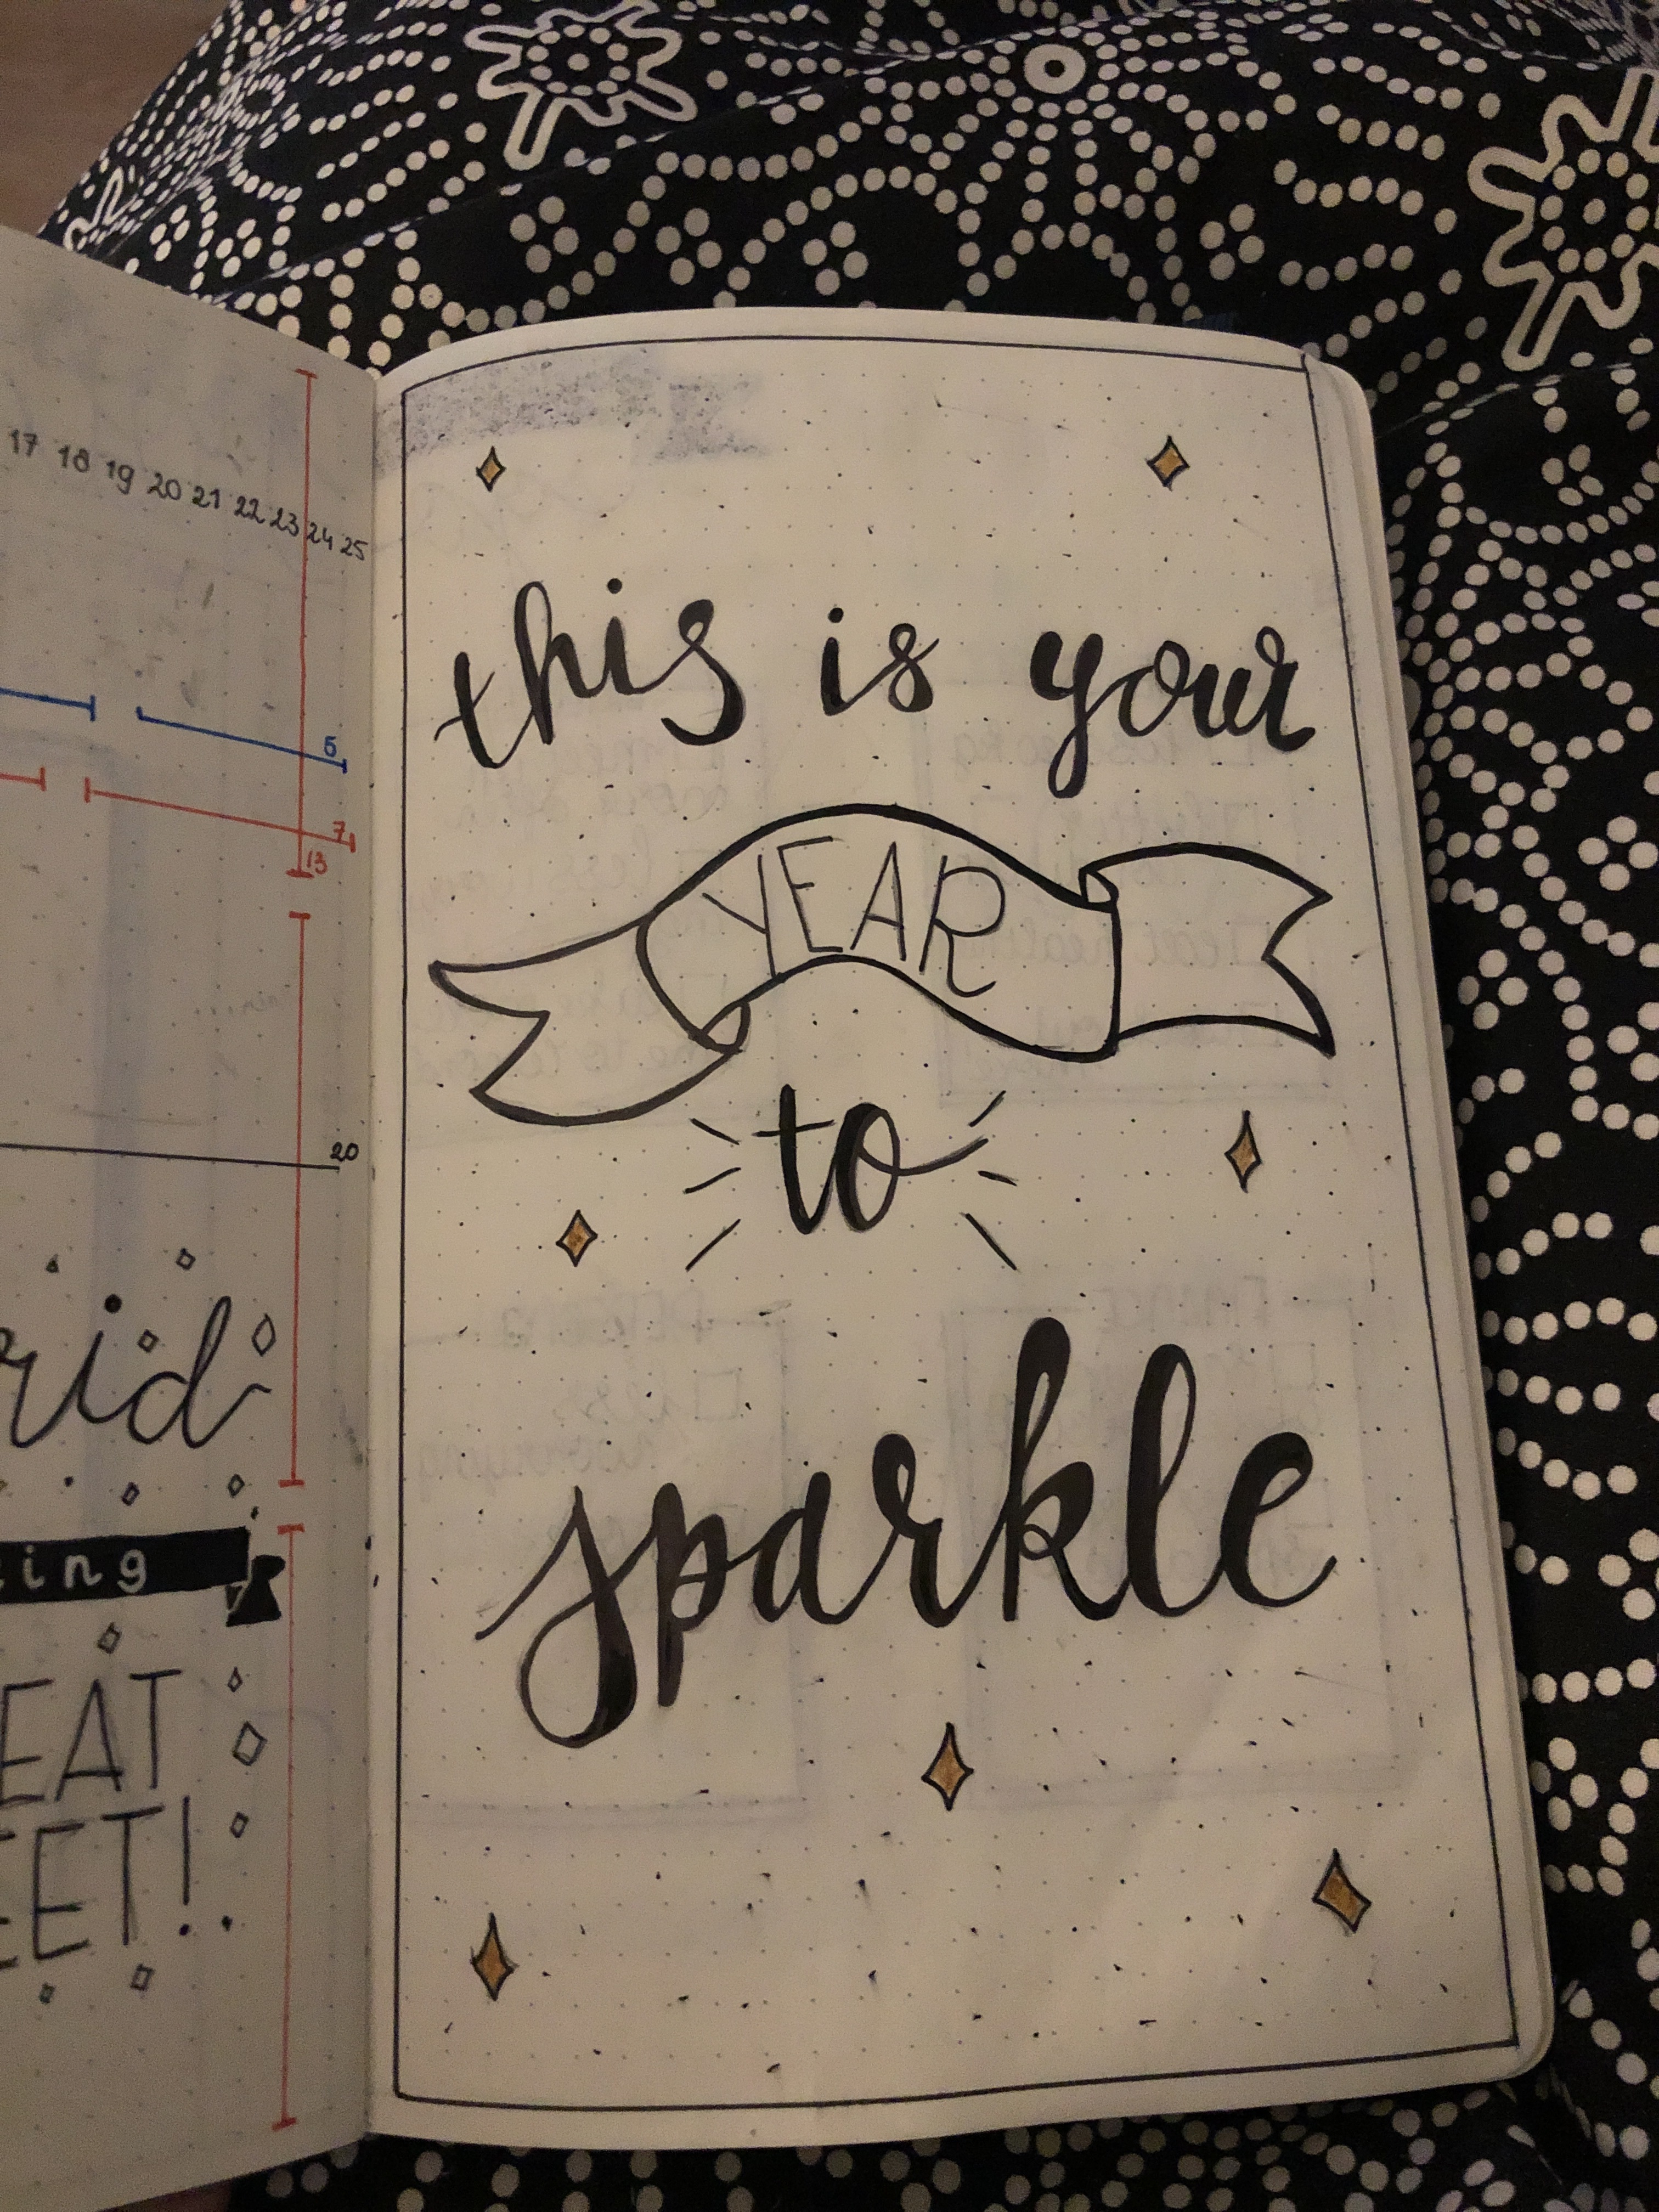 17 18 19 20 21 22 23 24 25
6
7
13
20
rid
ing
EAT
EET!
this is your
YEAR
to
sparkle